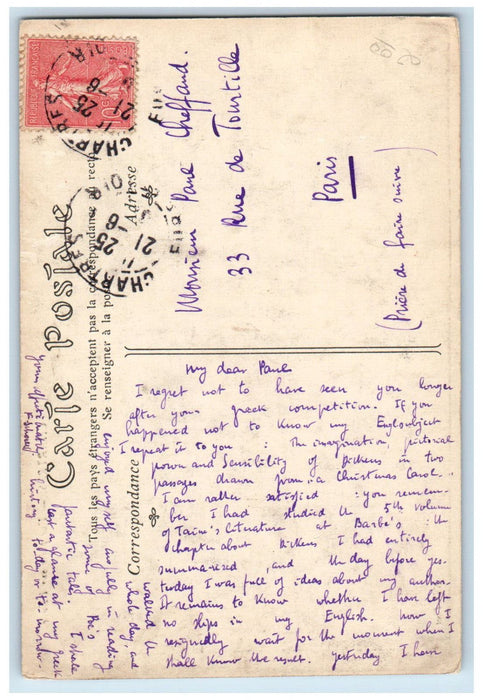 Carte Postale
Tous les pays étrangers n'acceptent pas la correspondance au recto
Se renseigner à la poste
Correspondance
Adresse
REPUBLIQUE FRANÇAISE
10c
CHARTRES
11 25
21 -6
EURE
CHARTRES
11 25
21 -6
EURE
Monsieur Paul Cheffaud.
33 Rue de Tourtille
Paris
(Prière de faire suivre)
My dear Paul
I regret not to have seen you longer
after your greek competition. If you
happened not to know my Engl subject
I repeat it to you : The imagination, pictorial
power and Sensibility of Dickens in two
passages drawn from : a Christmas Carol..
I am rather satisfied : you remem-
ber I had studied the 5th volume
of Taine's literature at Barbe's : the
chapter about Dickens I had entirely
summarised, and the day before yes-
terday I was full of ideas about my author.
It remains to know whether I have left
no slips in my English. Now I
resignedly wait for the moment when I
shall know the result. yesterday I have
walked the
whole day and
enjoyed myself awfully in reading
some of Poe's
fantastic tales, I shall
cast a glance at my greek
history to day or to-morrow-